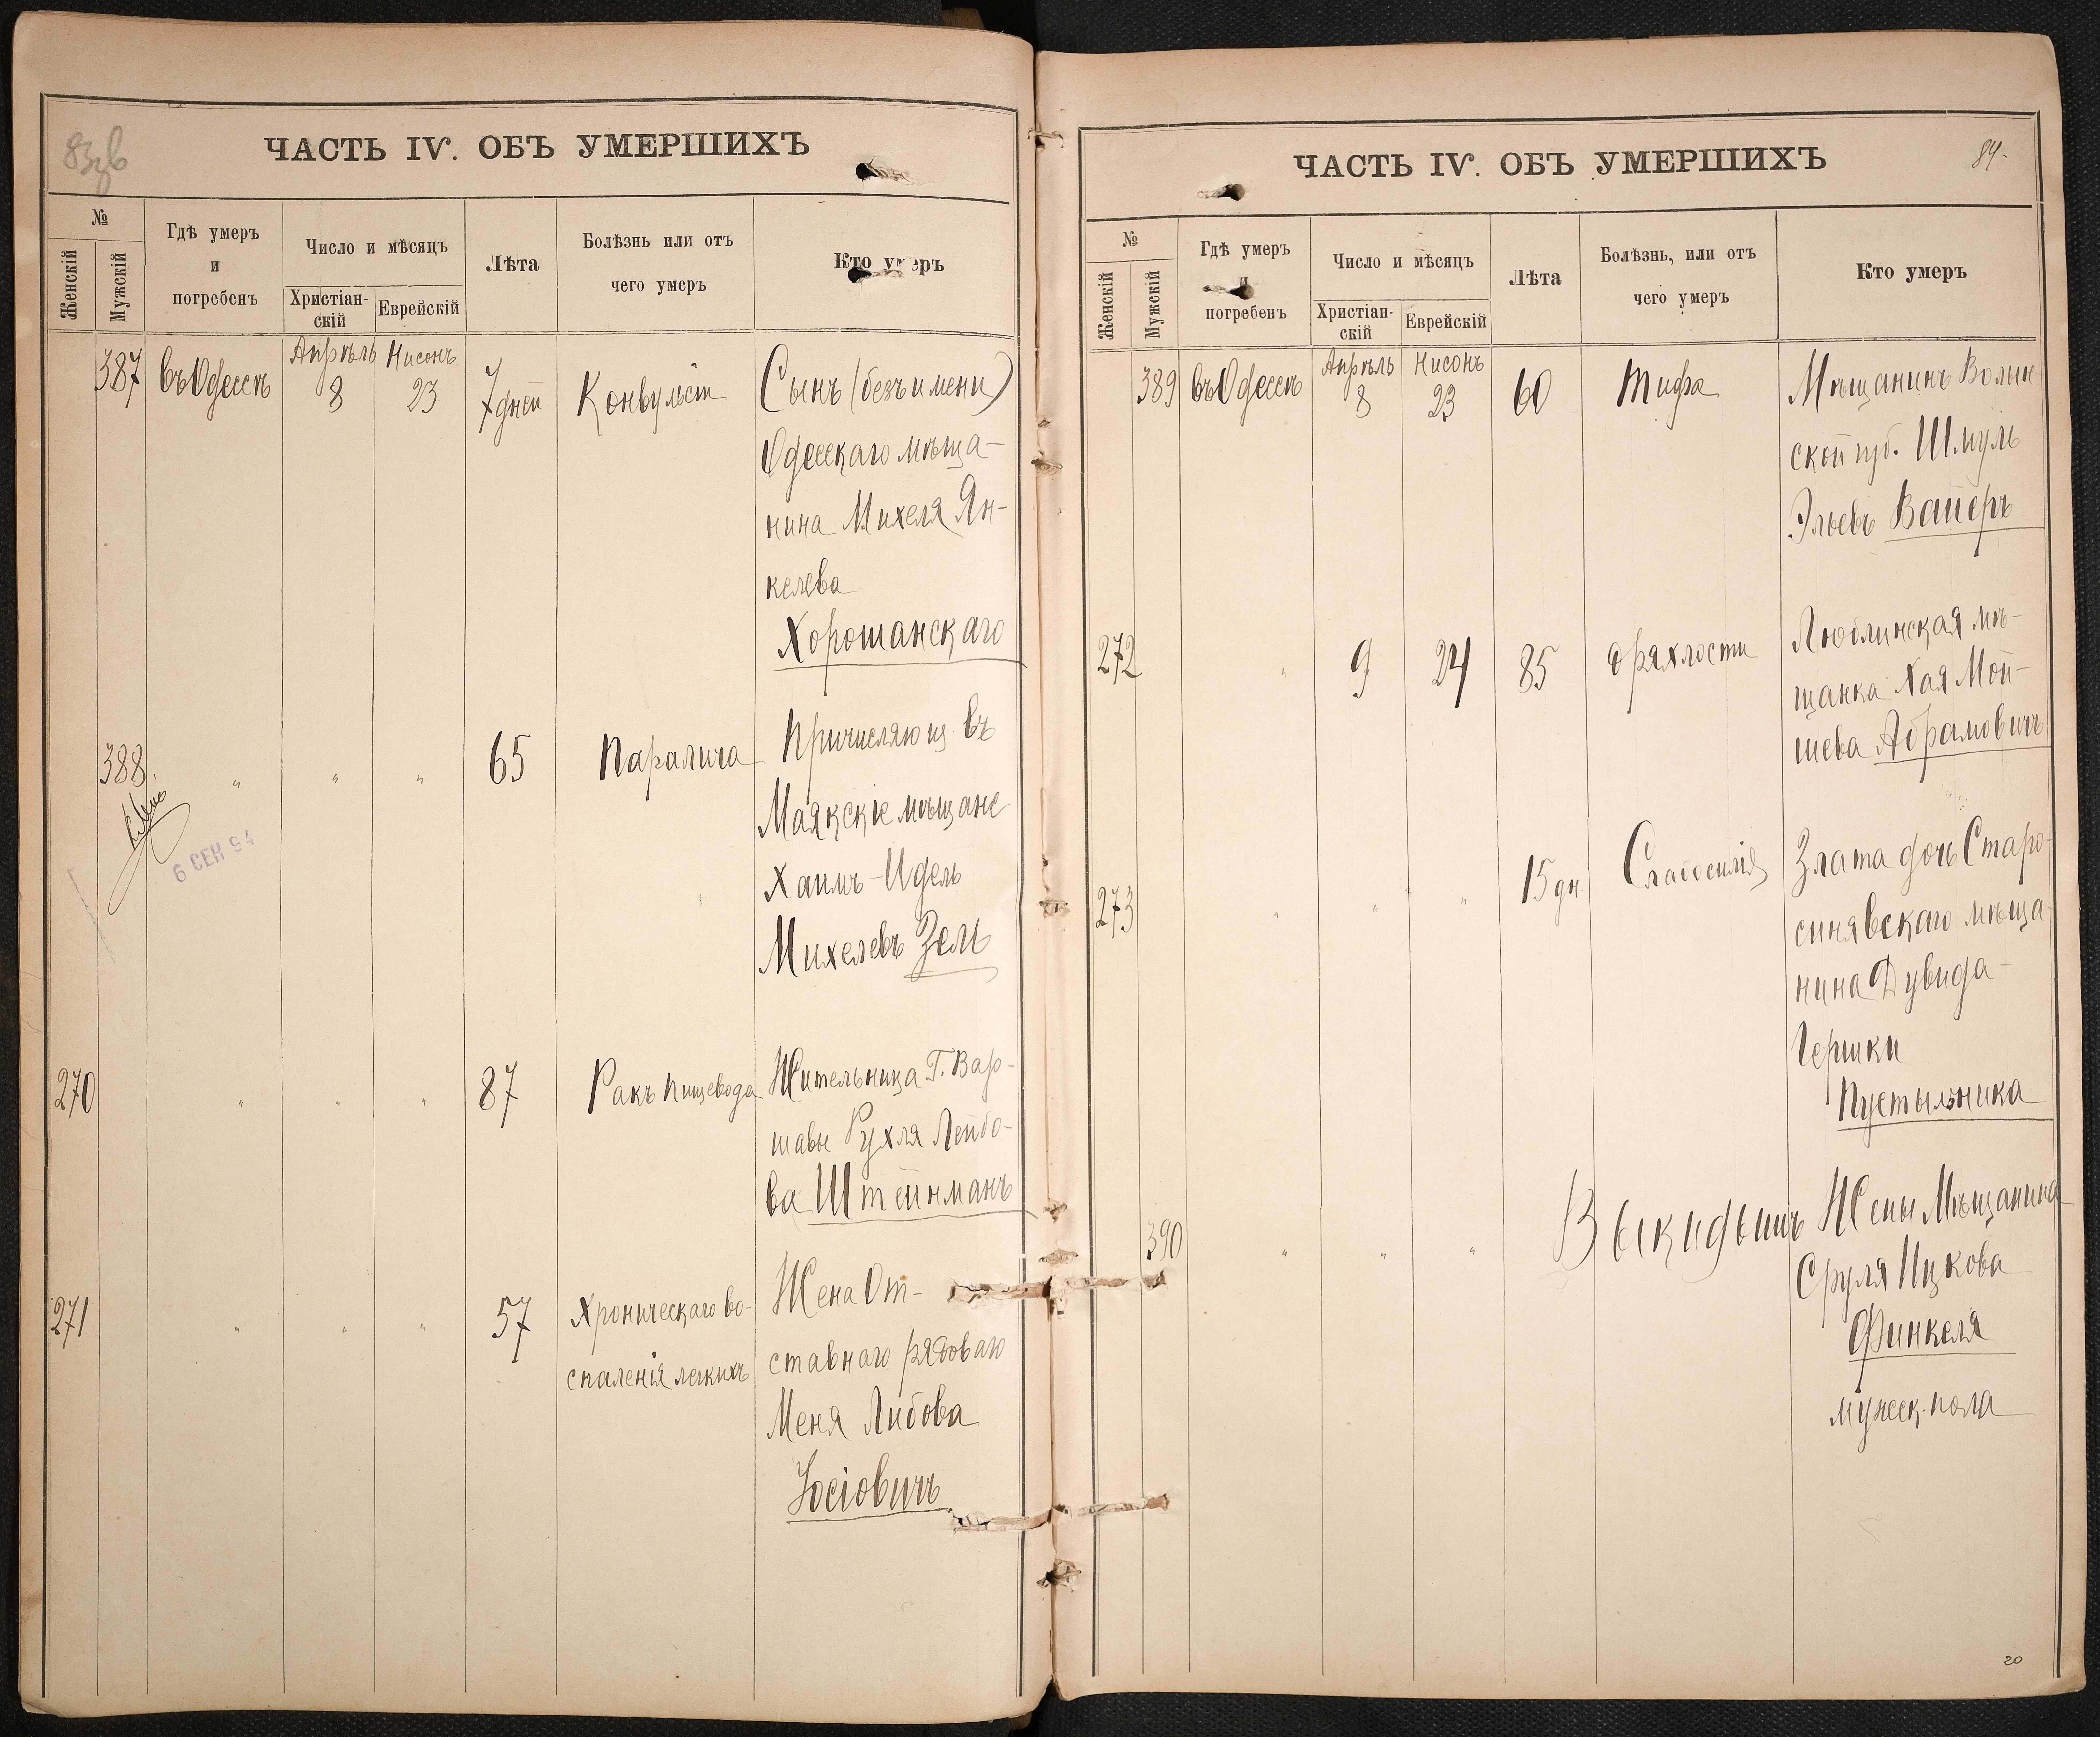 83 об
ЧАСТЬ IV. ОБЪ УМЕРШИХЪ
№
Женскій
Мужскій
Гдѣ умеръ
и
погребенъ
Число и мѣсяцъ
Христіан-
скій
Еврейскій
Лѣта
Болѣзнь или отъ
чего умеръ
Кто умеръ
387 въ Одессѣ Апрѣль 8 Нисонъ 23 7 дней Конвульсіи Сынъ (безъ имени)
Одесскаго мѣща-
нина Михеля Ян-
келева
Хорошанскаго
388 " " " 65 Паралича Причисляющ. въ
Маякскіе мѣщане
Хаимъ-Идель
Михелевъ Зель
6 СЕН 94
270 " " " 87 Ракъ пищевода Жительница Г. Вар-
шавы Рухля Лейбо-
ва Штейнманъ
271 " " " 57 Хроническаго во- Жена От-
спаленія легкихъ ставнаго рядоваго
Меня Либова
Іосіовичъ
ЧАСТЬ IV. ОБЪ УМЕРШИХЪ
84.
№
Женскій
Мужскій
Гдѣ умеръ
и
погребенъ
Число и мѣсяцъ
Христіан-
скій
Еврейскій
Лѣта
Болѣзнь, или отъ
чего умеръ
Кто умеръ
389 въ Одессѣ Апрѣль 8 Нисонъ 23 60 Тифа Мѣщанинъ Волын
ской губ. Шмуль
Эльевъ Вайеръ
272 " 9 24 85 Дряхлости Люблинская мѣ-
щанка Хая Мой-
шева Абрамовичъ
273 " " " 15 дн Слабосилія Злата дочь Старо-
синявскаго мѣща
нина Дувида-
Гершки
Пустыльника
390 " " " Выкидышъ Жены Мѣщанина
Сруля Ицкова
Финкеля
мужеск. пола
20